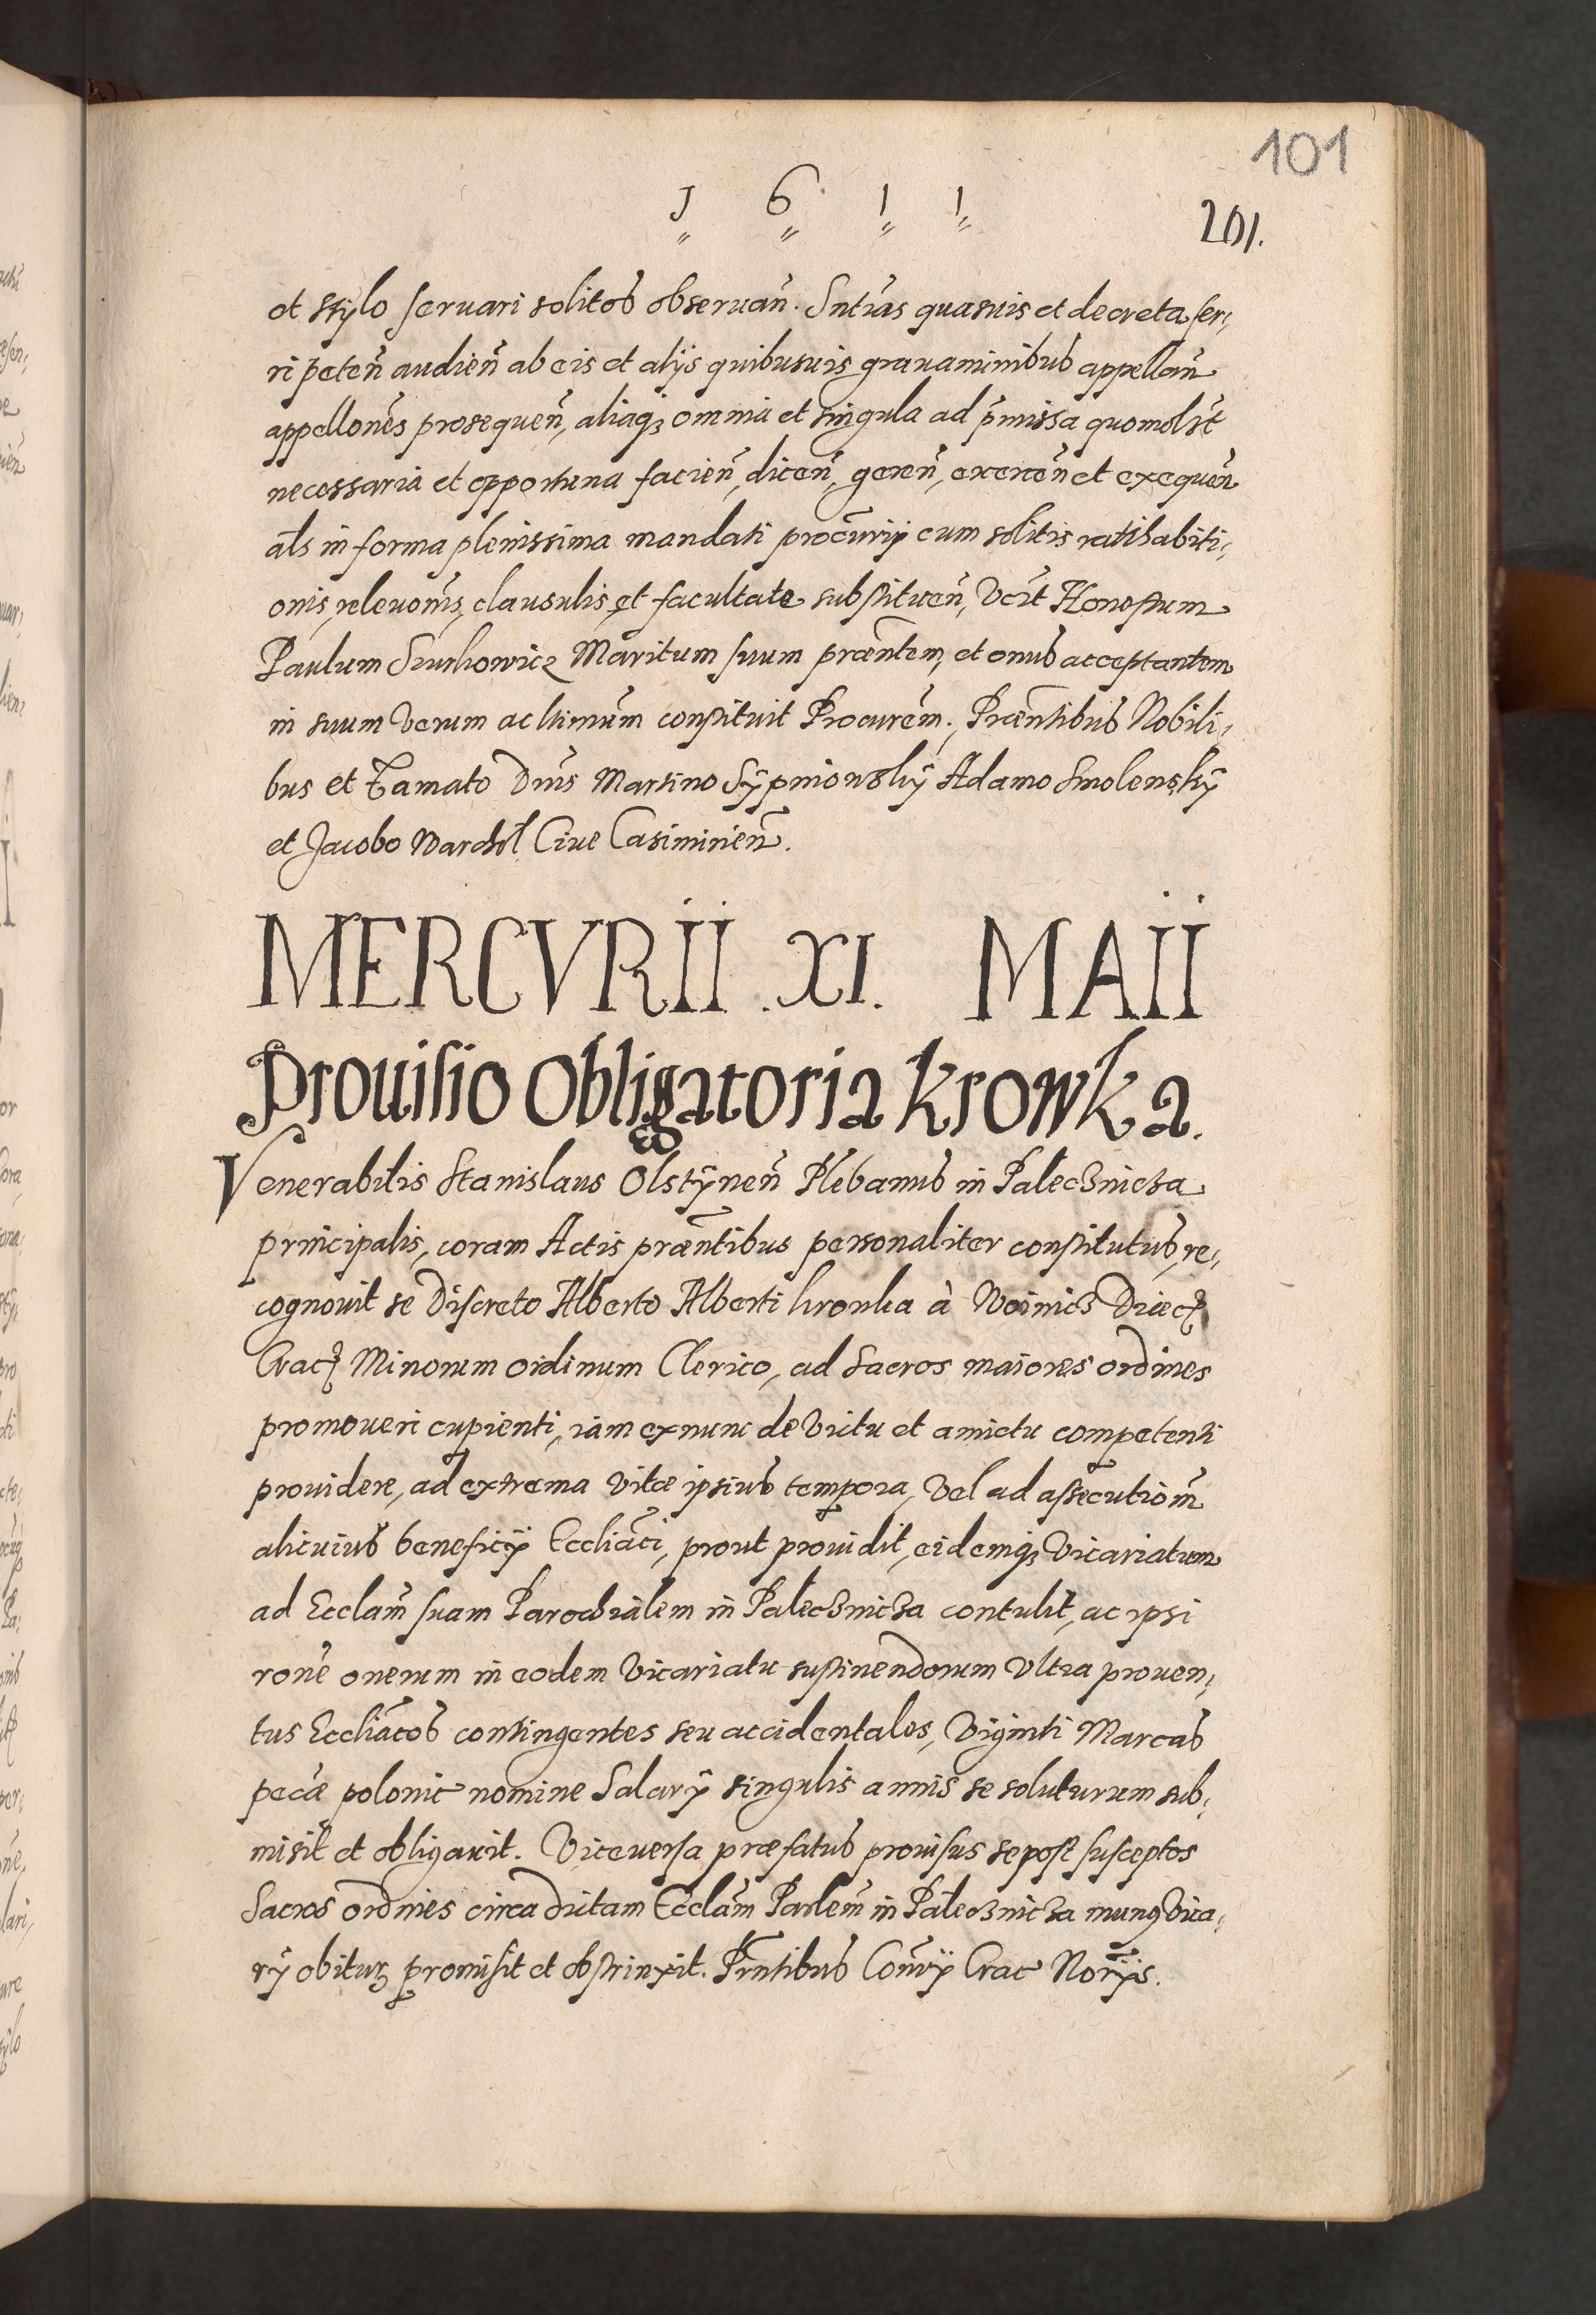 101
1 6 1 1
201.
et stylo seruari solitos obseruan̄. Sntīas quasuis et decreta fer,
ri peten̄ audien̄ ab eis et alijs quibusuis grauaminibus appellan̄
appellōnes prosequen̄, aliaq3 omnia et singula ad p̄missa quomolīt
necessaria et opportuna facien̄, dicen̄, geren̄, exercen̄ et exequen̄
al̄s in forma plenissima mandati procūrij cum solitis ratihabiti,
onis, releuōnis, clausulis, et facultate substituen̄, Vcīt Honestum
Paulum Szurkowicz Maritum suum praēntem, et onus acceptantem
in suum Verum ac ltimūm constituit Procurēm. Praēntibus Nobili,
bus et Famato Dnīs Martino Sÿpniowskÿ Adamo Smolenskÿ
et Jacobo Marchel Ciue Casimirien̄.
MERCVRII .XI. MAII
Prouisio Obligatoria Krowka.
Venerabilis Stanislaus Olstÿnen̄ Plebanus in Palecznicza
principalis, coram Actis praēntibus personaliter constitutus, re,
cognouit se Discreto Alberto Alberti krowka à Woinicz Diaec̄
Crac̄ Minorum ordinum Clerico, ad Sacros maiores ordines
promoueri cupienti, iam exnunc de Victu et amictu competenti
prouidere, ad extrema Vitae ipsius tempora, Vel ad assecutiōm
alicuius beneficij Eccliāci, prout prouidit, eidemq3 Vicariatum
ad Ecclām suam Parochialem in Palecznicza contulit, ac ipsi
rōne onerum in eodem Vicariatu sustinendorum Vltra prouen,
tus Eccliācos contingentes seu accidentales, Viginti Marcas
pecāe polonic nomine Salarÿ singulis annis se soluturum sub,
misit et obligauit. Viceuersa praefatus prouisus se post susceptos
Sacros ordines circa dictam Ecclām Parlēm in Palecznicza munus Vica,
rÿ obitur3 promisit et obstrinxit. Prntibus Cōnrij Crac Norijs.